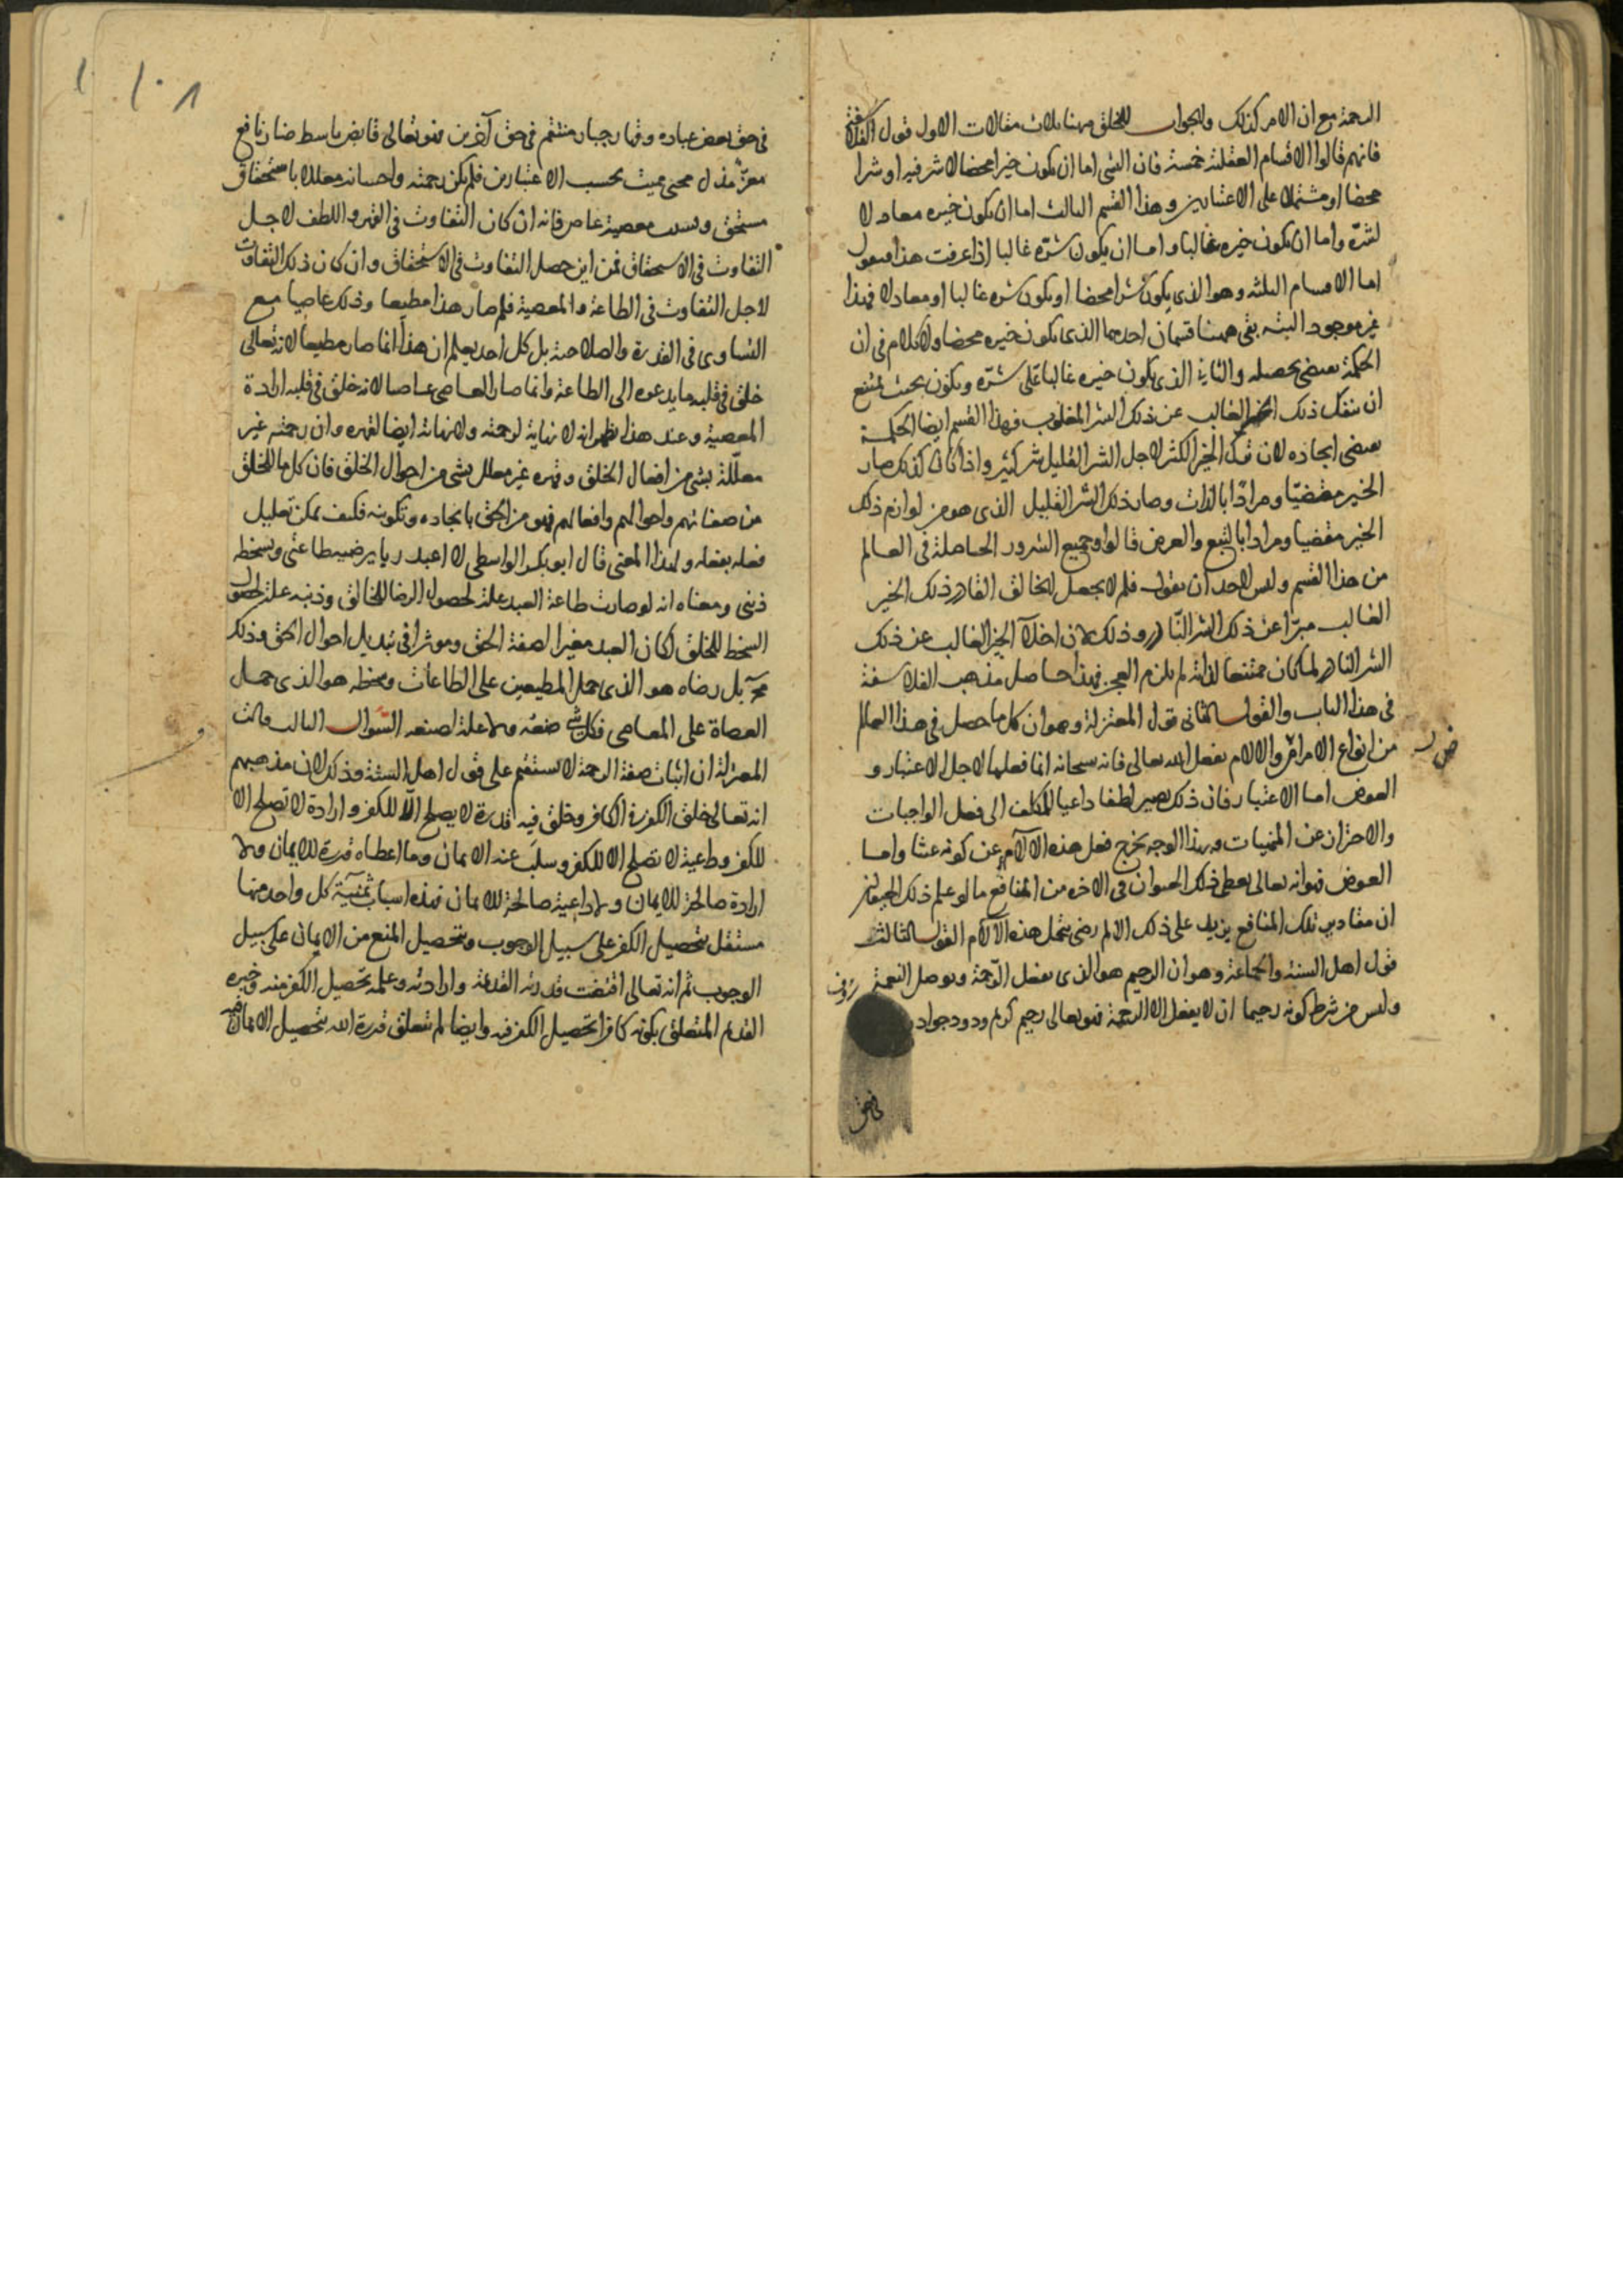 الرحمة مع ان الامر كذلك والجواب للخلق ههنا ثلاث مقالات الاول قول الفلاسفة
فانهم قالوا الاقسام العقلية خمسة فان الشى اما ان يكون خيرا محضا لا شر فيه او شرا
محضا او مشتملا على الاعتبارين وهذا القسم الثالث اما ان يكون خيره معادلا
لشره واما ان يكون خيره غالبا واما ان يكون شره غالبا اذا عرفت هذا فنقول
اما الاقسام الثلثة وهو الذى يكون شرا محضا او يكون شره غالبا او معادلا فهذا
غير موجود البتة بقى ههنا قسمان احدهما الذى يكون خيره محضا ولا كلام فى ان
الحكمة تقتضى تحصيله والثانى الذى يكون خيره غالبا على شره ويكون بحيث يمتنع
ان ينفك ذلك الخير الغالب عن ذلك الشر المغلوب فهذا القسم ايضا الحكمة
تقتضى ايجاده لان ترك الخير الكثير لاجل الشر القليل شر كثير واذا كان كذلك صار
الخير مقتضيا ومرادا بالذات وصار ذلك الشر القليل الذى هو من لوازم ذلك
الخير مقضيا ومرادا بالتبع والعرض قالوا وجميع الشرور الحاصلة فى العالم
من هذا القسم وليس لاحد ان يقول فلم لا يجعل الخالق القادر ذلك الخير
الغالب مبرا عن ذلك الشر النادر وذلك لان اخلاء الخير الغالب عن ذلك
الشر النادر لما كان ممتنعا لذاته لم يلزم العجز فهذا حاصل مذهب الفلاسفة
فى هذا الباب والقول الثانى قول المعتزلة وهو ان كل ما حصل فى هذا العالم
من انواع الامراض والالام بفعل الله تعالى فانه سبحانه انما فعلها لاجل الاعتبار و
العوض اما الاعتبار فان ذلك يصير لطفا داعيا للمكلف الى فعل الواجبات
والاحتراز عن المنهيات وبهذا الوجه يخرج فعل هذه الآلام عن كونه عبثا واما
العوض فهو انه تعالى يعطى ذلك الحيوان فى الاخره من المنافع ما لو علم ذلك الحيوان
ان مقادير تلك المنافع يزيد على ذلك الالم رضى بتحمل هذه الآلام القول الثالث
قول اهل السنة والجماعة وهو ان الرحيم هو الذى يفعل الرحمة ويوصل النعمة
وليس من شرط كونه رحيما ان لا يفعل الا الرحمة فهو تعالى رحيم كريم ودود جواد
رؤف
فى حق
فى حق بعض عباده وقهار جبار منتقم فى حق آخرين فهو تعالى قابض باسط ضار نافع
معز مذل محيى مميت بحسب الاعتبارين فلم يكن رحمته واحسانه معللا باستحقاق
مستحق وليست معصية عاص فانه ان كان التفاوت فى القهر واللطف لاجل
التفاوت فى الاستحقاق فمن اين حصل التفاوت فى الاستحقاق وان كان ذلك التفاوت
لاجل التفاوت فى الطاعة والمعصية فلم صار هذا مطيعا وذلك عاصيا مع
التساوى فى القدرة والصلاحية بل كل احد يعلم ان هذا انما صار مطيعا لانه تعالى
خلق فى قلبه ما يدعوه الى الطاعة وانما صار العاصى عاصيا لانه خلق فى قلبه ارادة
المعصية وعند هذا يظهر انه لا نهاية لرحمته ولا نهاية ايضا لقهره وان رحمته غير
معللة بشى من افعال الخلق وقهره غير معلل بشى من احوال الخلق فان كل ما للخلق
من صفاتهم واحوالهم وافعالهم فهو من الحق بايجاده وتكوينه فكيف يمكن تعليل
فعله بفعله ولهذا المعنى قال ابو بكر الواسطى لا اعبد ربا يرضيه طاعتى ويسخطه
ذنبى ومعناه انه لو صارت طاعة العبد علة لحصول الرضا للخالق وذنبه علة لحصول
السخط للخلق لكان العبد مغيرا لصفة الحق وموثرا فى تبديل احوال الحق وذلك
مح بل رضاه هو الذى حمل المطيعين على الطاعات وسخطه هو الذى حمل
العصاة على المعاصى فكل شى صنعه ولا علة لصنعه السؤال الثالث قالت
المعتزلة ان اثبات صفة الرحمة لا يستقيم على قول اهل السنة وذلك لان مذهبهم
انه تعالى خلق الكفر فى الكافر وخلق فيه قدرة لا يصلح الا للكفر وارادة لا تصلح الا
للكفر وداعية لا تصلح الا للكفر وسلب عنه الايمان وما اعطاه قدرة للايمان ولا
ارادة صالحة للايمان ولا داعية صالحة للايمان فهذه اسباب ثمنية كل واحد منها
مستقل بتحصيل الكفر على سبيل الوجوب وبتحصيل المنع من الايمان على سبيل
الوجوب ثم انه تعالى اقتضت قدرته القديمة وارادته وعلمه تحصيل الكفر منه وخبره
القديم المتعلق بكونه كافرا تحصيل الكفر فيه وايضا لم تتعلق قدرة الله بتحصيل الايمان فيه